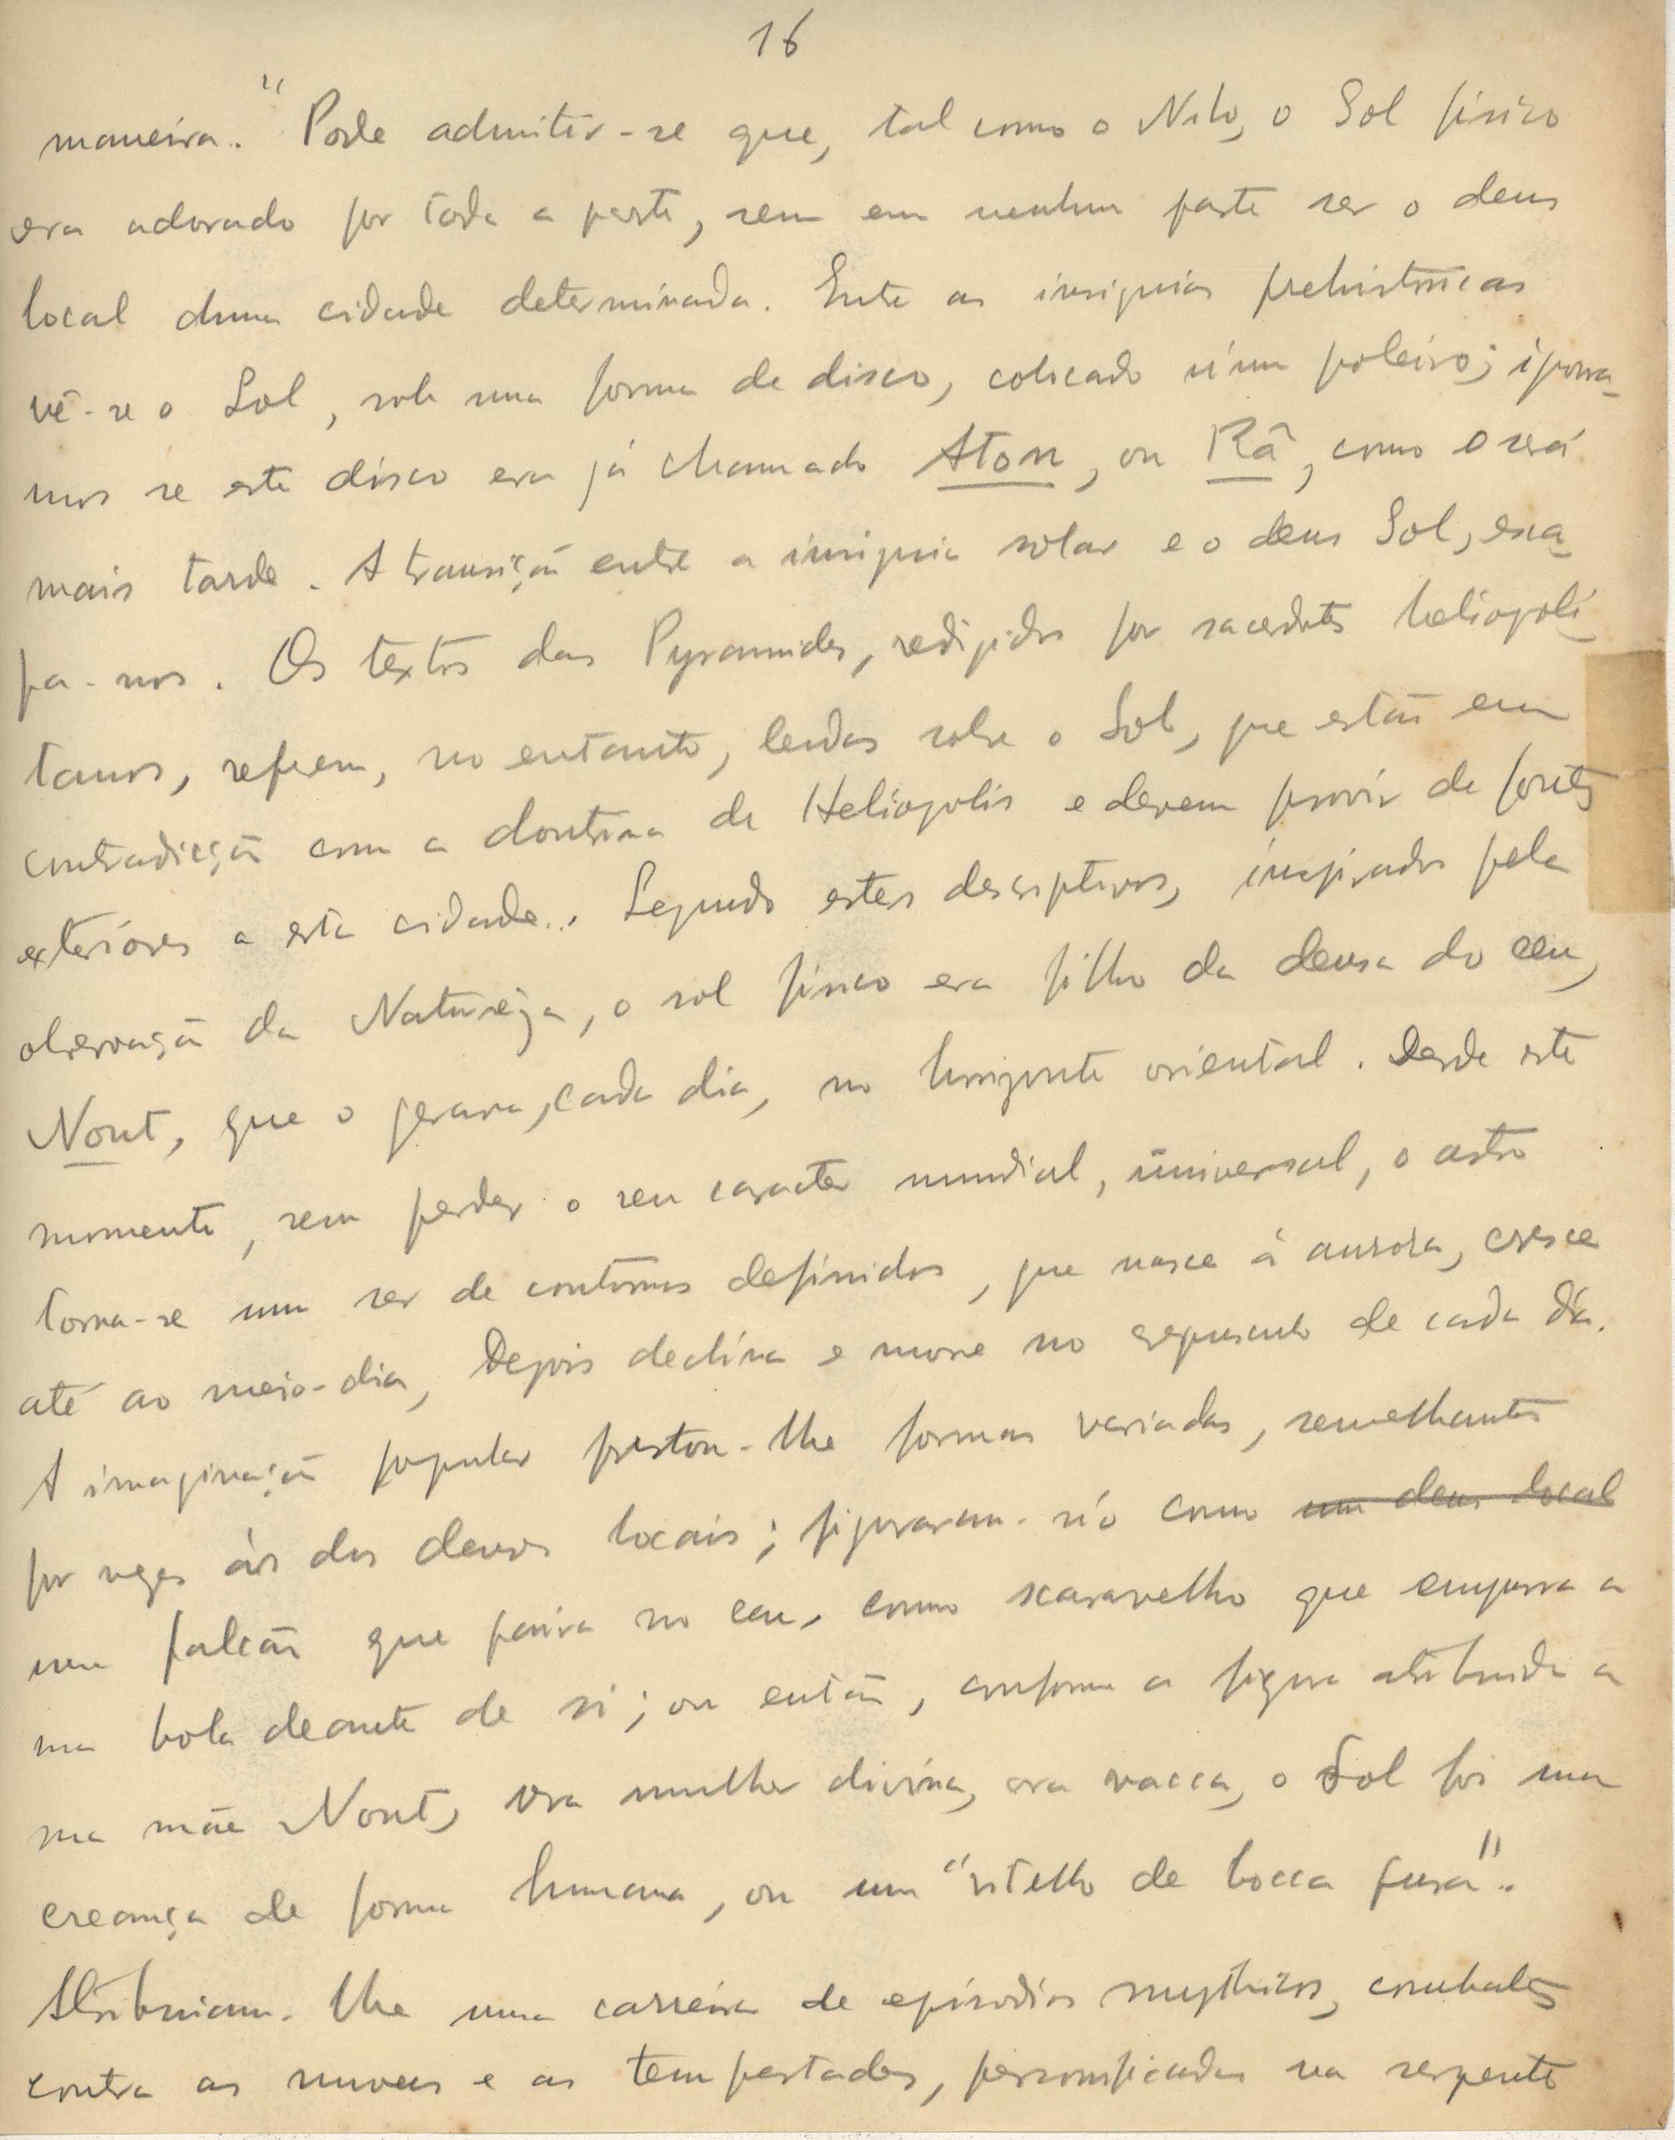 16
maneira." Pode admitir-se que, tal como o Nilo, o Sol físico
era adorado por toda a parte, sem em nenhuma parte ser o deus
local duma cidade determinada. Entre as insignias prehistóricas
vê-se o Sol, sob uma forma de disco, colocado n'um poleiro; ignora-
mos se este disco era já chamado Aton, ou Râ, como o será
mais tarde. A transição entre a insignia solar e o deus Sol, esca-
pa-nos. Os textos das Pyramides, redigidos por sacerdotes heliopoli-
tanos, referem, no entanto, lendas sobre o Sol, que estão em
contradicção com a doutrina de Heliopolis e devem provir de fontes
exteriores a esta cidade.. Segundo estes descriptivos, inspirados pela
observação da Naturêza, o sol físico era filho da deusa do ceu,
Nout, que o gerava, cada dia, no horizonte oriental. Desde este
momento, sem perder o seu caracter mundial, universal, o astro
torna-se um ser de contornos definidos, que nasce á aurora, cresce
até ao meio-dia, Depois declina e morre no crepusculo de cada dia.
A imaginação popular prestou-lhe formas variadas, semelhantes
por vezes ás dos deuses locais; figuraram-n'o como um deus local
um falcão que paira no ceu, como scaravelho que empurra a
sua bola deante de si; ou então, conforme a figura atribuida a
sua mãe Nout, ora mulher divina, ora vacca, o Sol foi uma
creança de forma humana, ou um "vitello de bocca pura".
Atribuiam-lhe uma carreira de episodios mythicos, combates
contra as nuvens e as tempestades, personificadas na serpente